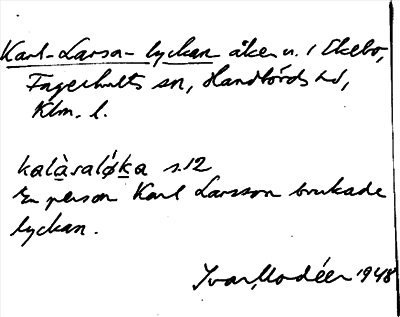 Karl-Larsa-lyckan åker u. / Ekebo,
Fagerhults sn, Handbörds hd,
Klm. l.
kalàsaløka s.12
En person Karl Larsson brukade
lyckan.
Ivar Modéer 1948